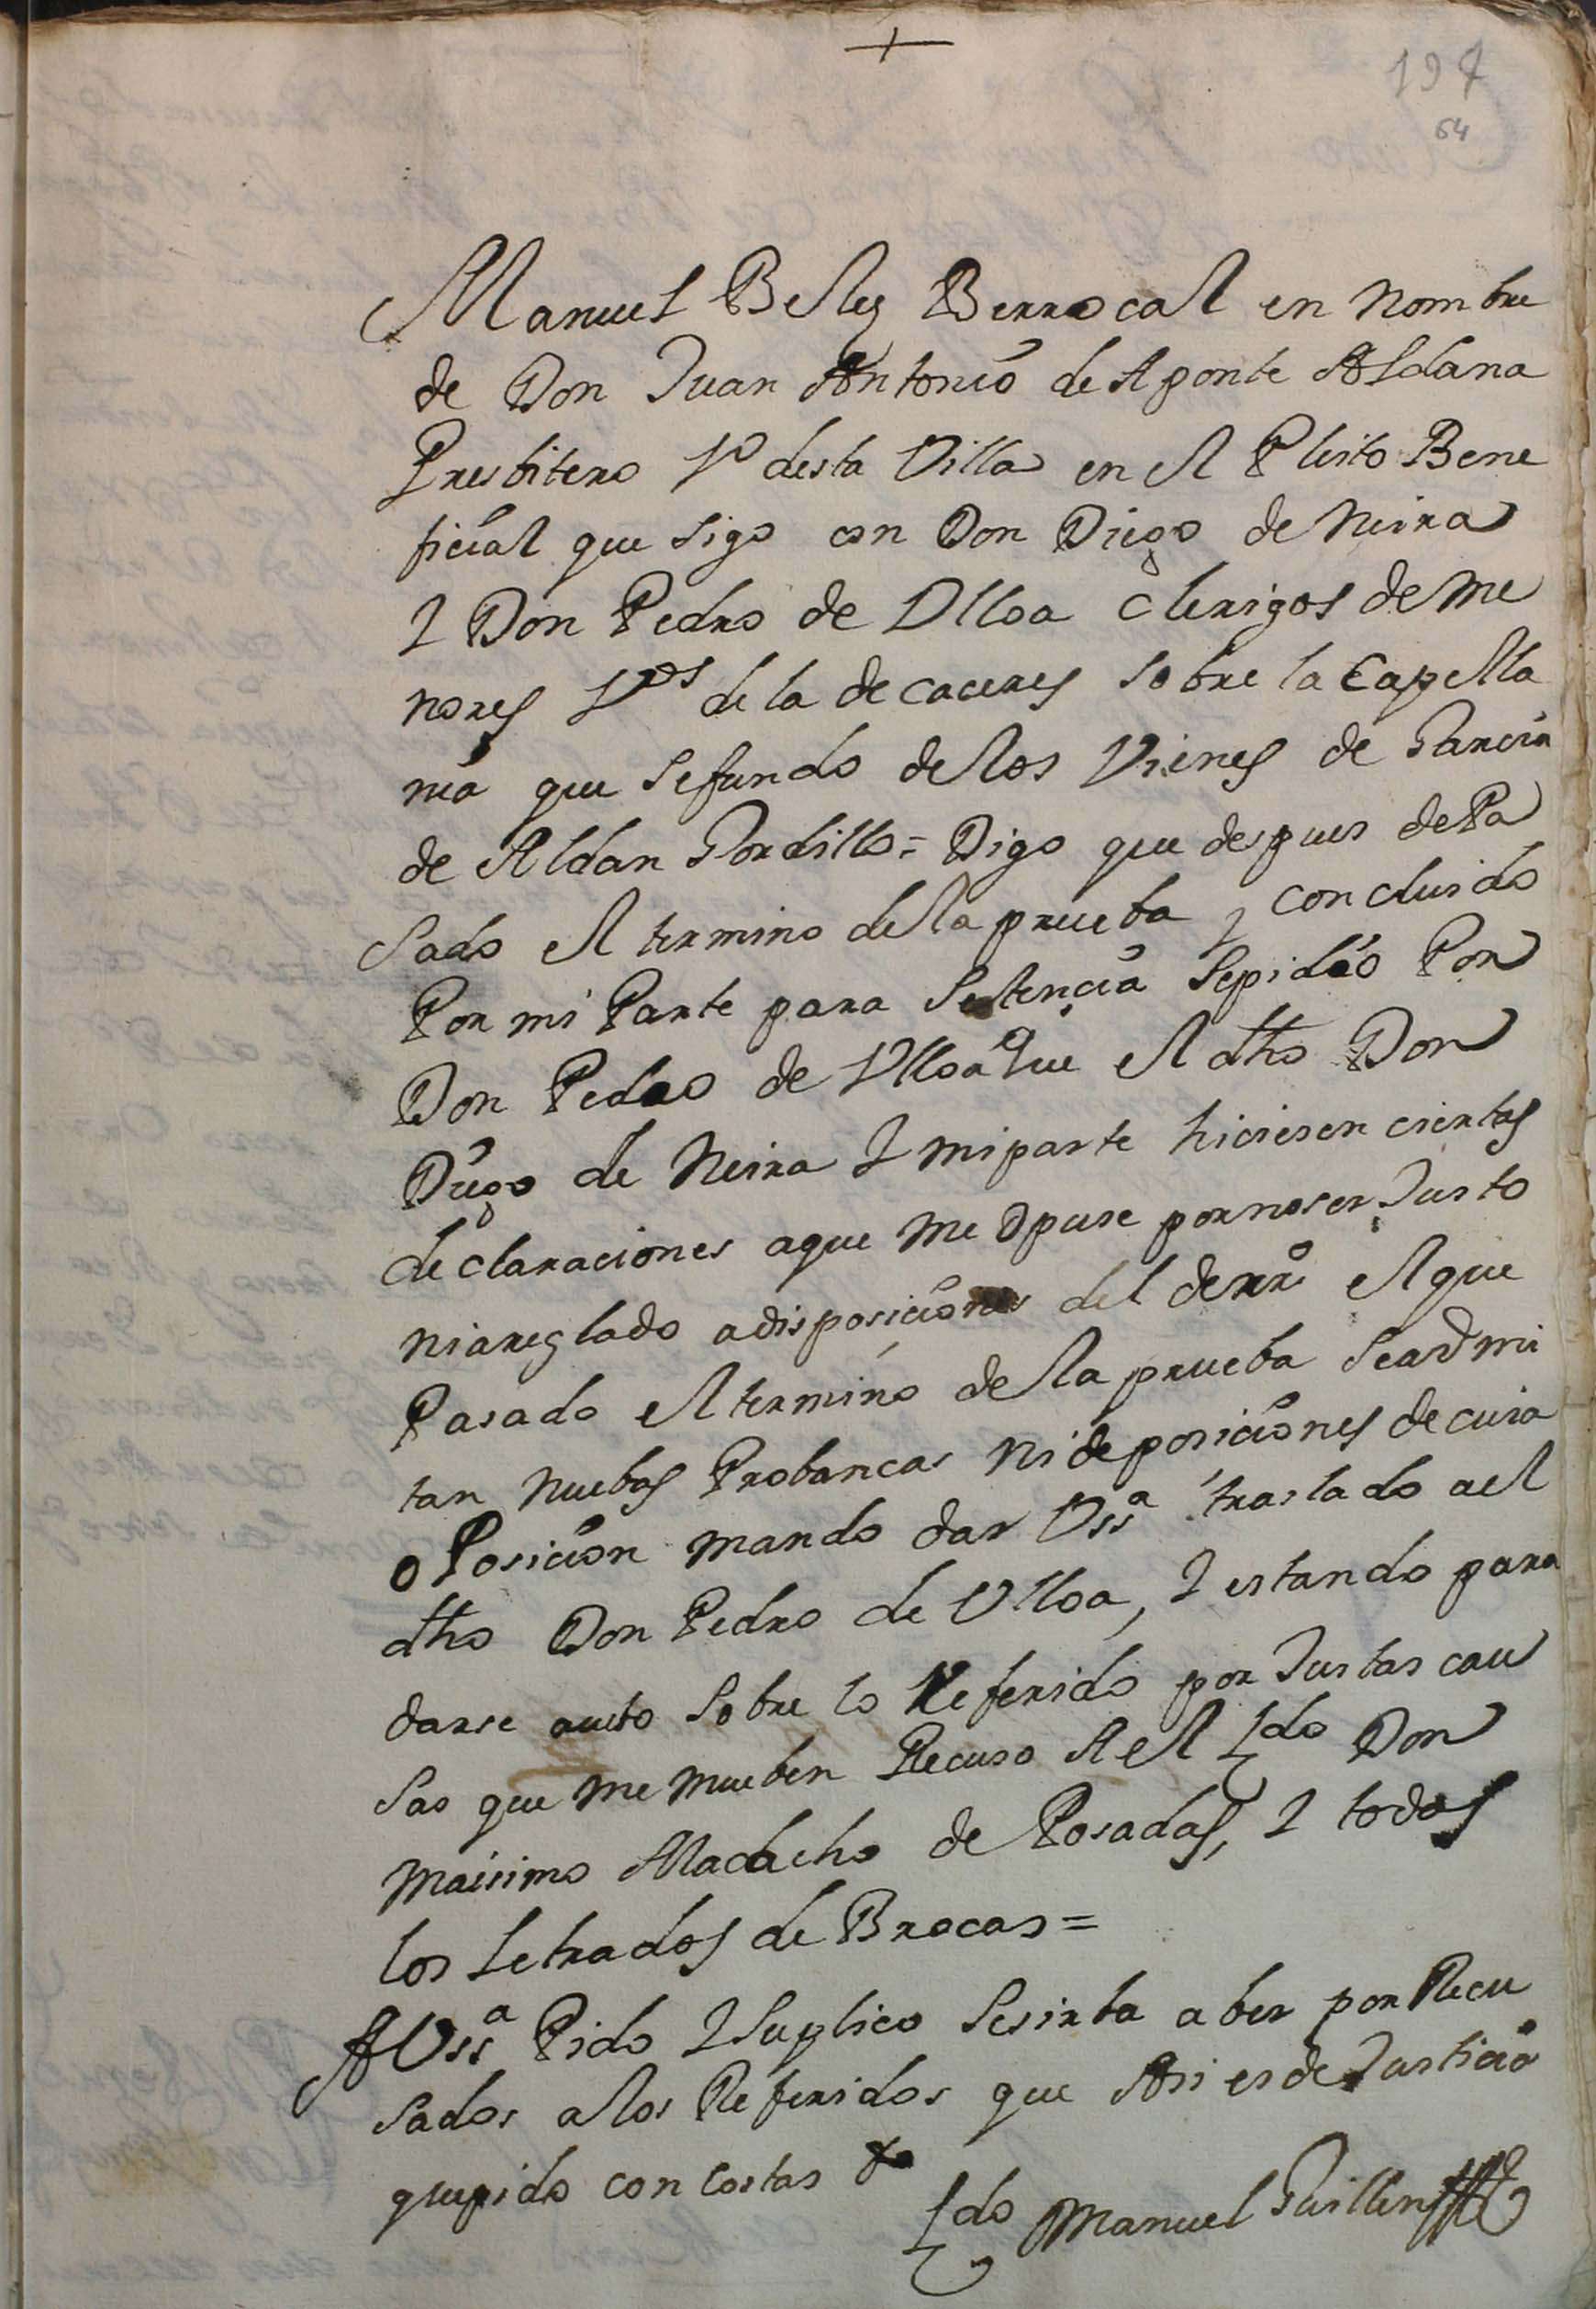 +
197
64
Manuel Belez Berrocal en nombre
de Don Juan Antonio de Aponte Aldana
Presbitero Vº desta Villa en el Pleito Bene
ficial que sigo con Don Diego de Neira
I Don Pedro de Vlloa Clerigos de me
nores Vºs de la de caceres sobre la Capella
nia que se fundo de los Vienes de Garcia
de Aldan Gordillo = Digo que despues de Pa
sado el termino de la prueba y concluido
Por mi Parte para Sentencia se pidio Por
Don Pedro de Vlloa que el dho Don
Diego de Neira I mi parte hiciesen ciertas
declaraciones a que me opuse por no ser Justo
ni areglado a disposiciones del derrº el que
Pasado el termino de la prueba se admi
tan nuebas Probancas ni deposiciones de cuia
oposicion mando dar Vssª traslado a el
dho Don Pedro de Vlloa, I estando para
darse auto sobre lo Referido por Justas cau
sas que me mueben Recuso A el Ldo Don
Maisimo Madacho de Posadas, I todos
los Letrados de Brocas =
A Vssª Pido I Suplico se sirba aber por Recu
sados a los Referidos que Asi es de Justicia
que pido con costas &
Ldo Manuel Guillen